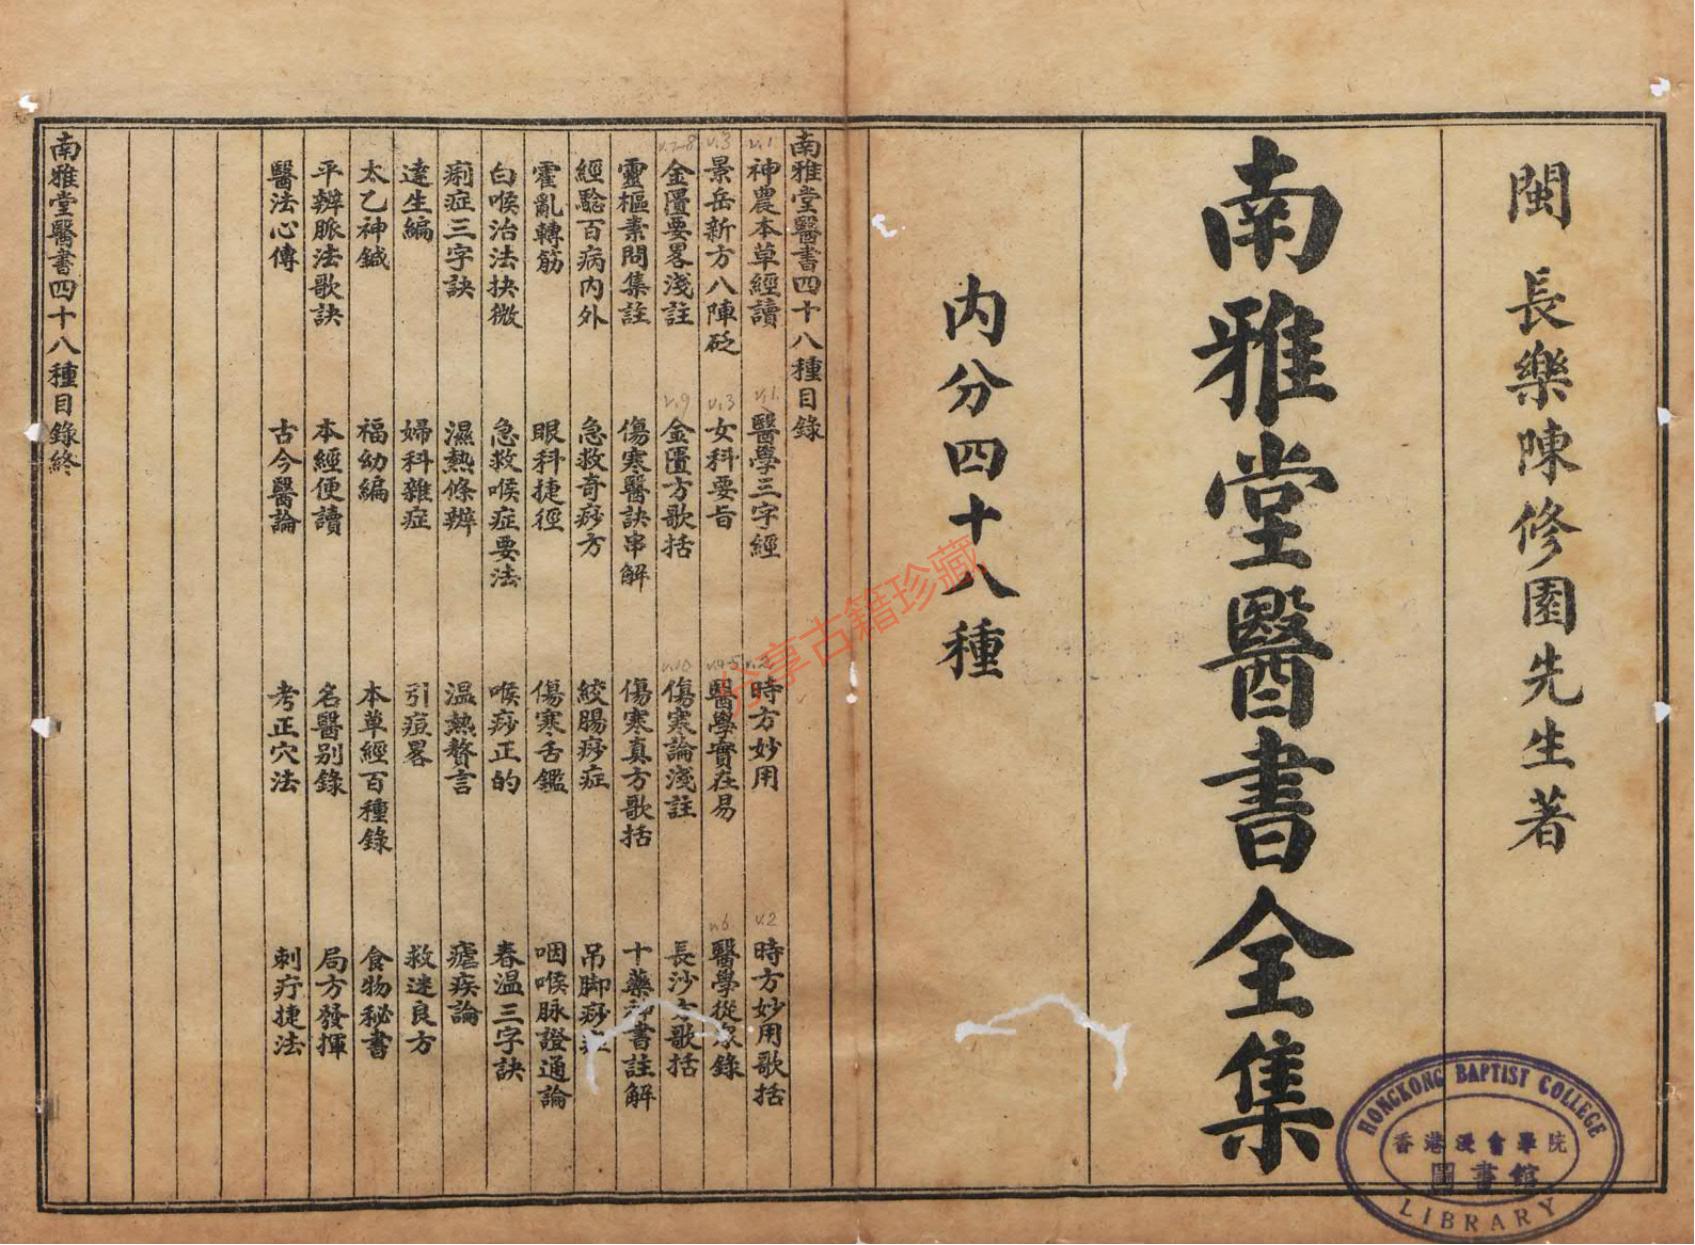 閩長樂陳修園先生著
南雅堂醫書全集
內分四十八種
南雅堂醫書四十八種目錄
神農本草經讀 醫學三字經 時方妙用 時方妙用歌括
景岳新方八陣砭 女科要旨 醫學實在易 醫學從眾錄
金匱要畧淺註 金匱方歌括 傷寒論淺註 長沙方歌括
靈樞素問集註 傷寒醫訣串解 傷寒真方歌括 十藥神書註解
經驗百病內外 急救奇痧方 絞腸痧症 吊脚痧症
霍亂轉筋 眼科捷徑 傷寒舌鑑 咽喉脉證通論
白喉治法抉微 急救喉症要法 喉痧正的 春溫三字訣
痢症三字訣 濕熱條辨 溫熱贅言 瘧疾論
達生編 婦科雜症 引痘畧 救迷良方
太乙神鍼 福幼編 本草經百種錄 食物秘書
平辨脈法歌訣 本經便讀 名醫別錄 局方發揮
醫法心傳 古今醫論 考正穴法 刺疔捷法
南雅堂醫書四十八種目錄終
v.1 v.1 v.2 v.2
v.3 v.3 v.4-5 v.6
v.7-8 v.9 v.10
分享古籍珍藏
HONGKONG BAPTIST COLLEGE
香港浸會學院
圖書館
LIBRARY